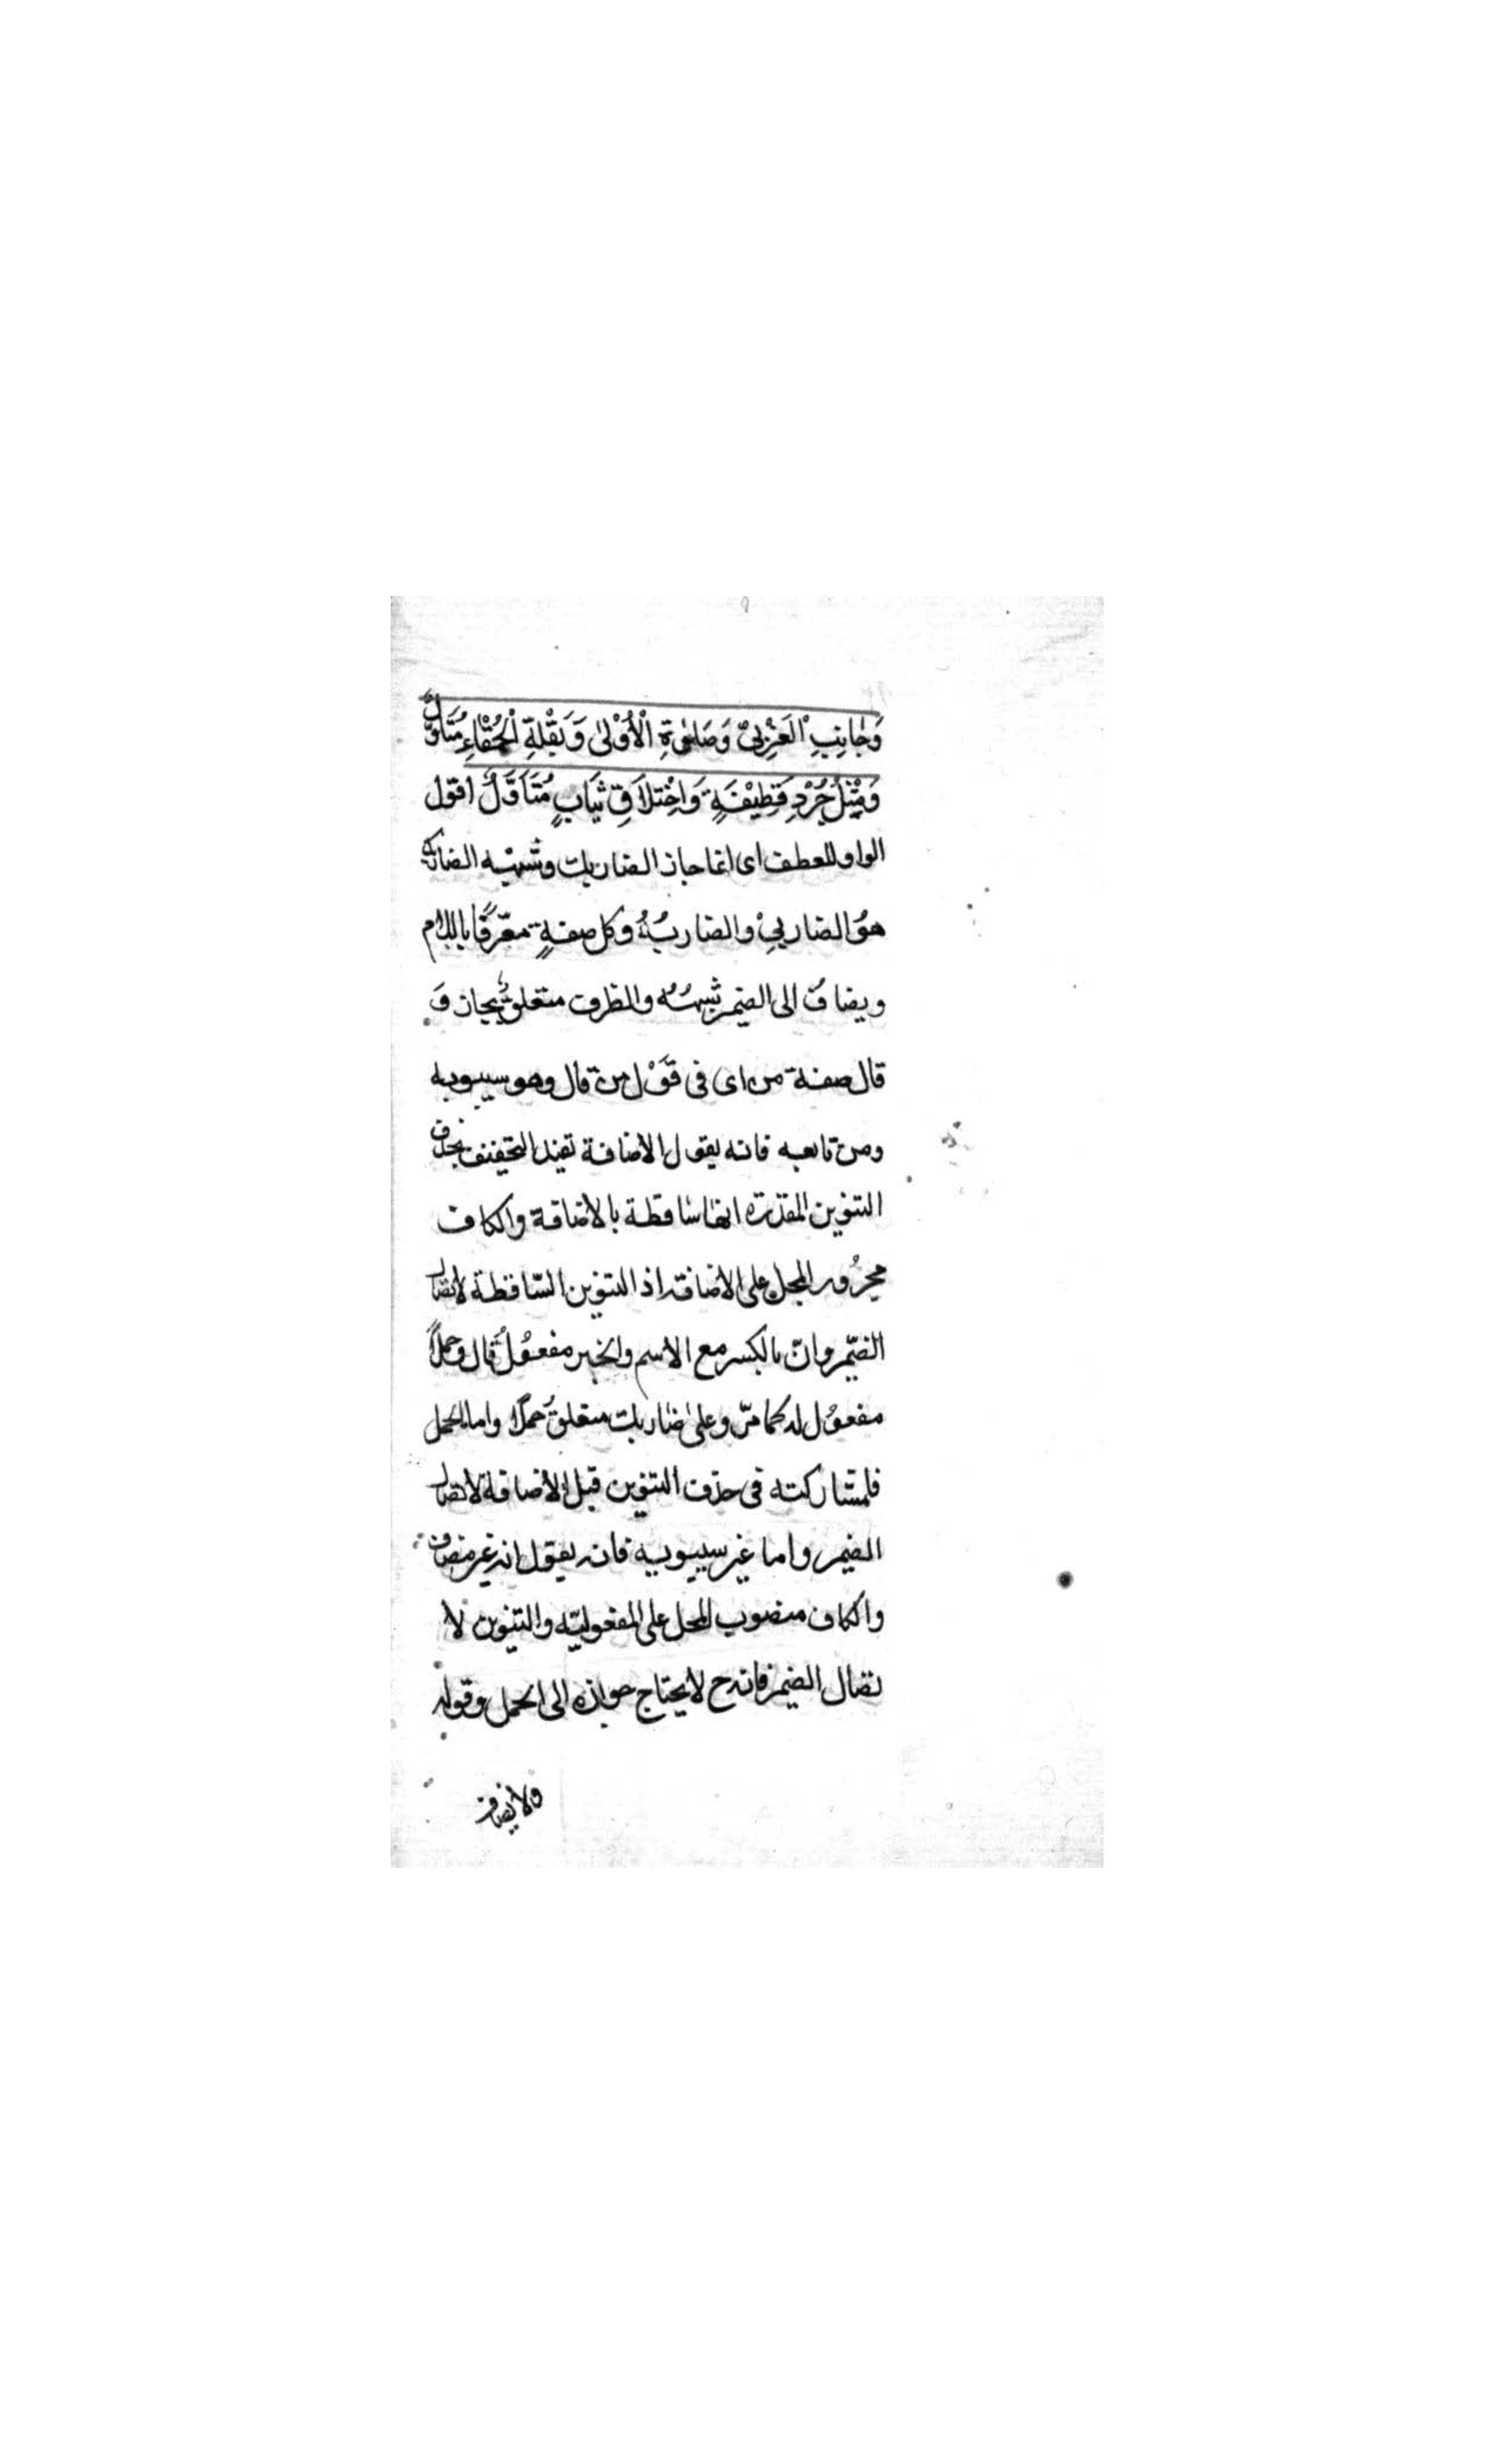 وَجَانِبِ الْغَرْبِيِّ وَصَلٰوةِ الْأُوْلٰى وَبَقْلَةِ الْحُمَقَاءِ مُتَاَوَّلٌ
وَمِثْلُ جُرْدِ قَطِيْفَةٍ وَاِخْتِلَاقِ ثِيَابٍ مُتَاَوَّلٌ اقول
الواو للعطف اى انما جاز الضاربك وشبهه الضاربك
هو الضاربىْ والضاربُهُ وكل صفةٍ معرّفًا باللام
ويضاف الى الضمير شبهُهُ والظرف متعلقٌ بجاز وَ
قال صفة من اى فى قَوْل من قال وهو سيبويه
ومن تابعه فانه يقول الاضافة تفيد التخفيف بحذف
التنوين المقدرة انها ساقطة بالاضافة والكاف
مجرُور المحل على الاضافة اذ التنوين السّاقطة لاتصال
الضّمير وانّ بالكسر مع الاسم والخبر مفعوُلُ قال وحملًا
مفعوُل له كما مرّ وعلى ضاربك متعلقُ حملًا واما الحمل
فلمشاركته فى حذف التنوين قبل الاضافة لاتصال
الضمير واما غير سيبويه فانه يقول انه غير مضاف
والكاف منصوب المحل على المفعوليّة والتنوين لا
تصال الضمير فانه ح لا يحتاج جوازه الى الحمل وقوله
ولا يضاف